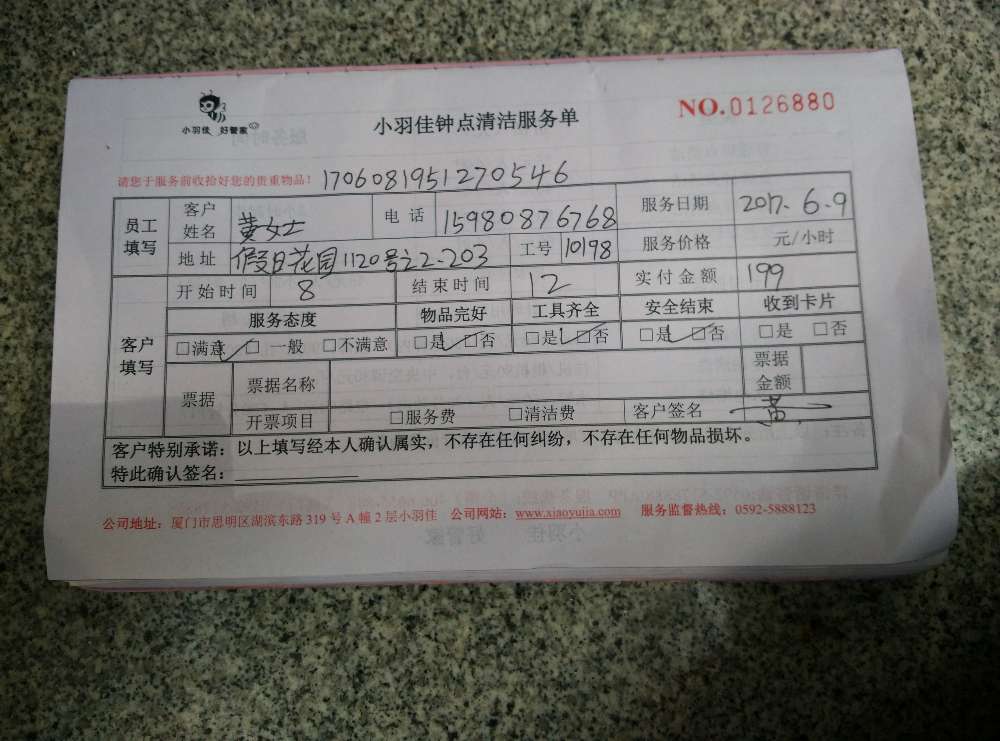 小羽佳 好管家
小羽佳钟点清洁服务单
NO.0126880
请您于服务前收拾好您的贵重物品! 1706081951270546
员工填写 客户姓名 黄女士 电话 15980876768 服务日期 2017.6.9
地址 假日花园1120号之2-203 工号 10198 服务价格 元/小时
客户填写 开始时间 8 结束时间 12 实付金额 199
服务态度 物品完好 工具齐全 安全结束 收到卡片
□满意 □一般 □不满意 □是 □否 □是 □否 □是 □否 □是 □否
票据 票据名称 票据金额
开票项目 □服务费 □清洁费 客户签名 黄
客户特别承诺：以上填写经本人确认属实，不存在任何纠纷，不存在任何物品损坏。
特此确认签名：
公司地址：厦门市思明区湖滨东路 319 号 A 幢 2 层小羽佳 公司网站：www.xiaoyujia.com 服务监督热线：0592-5888123